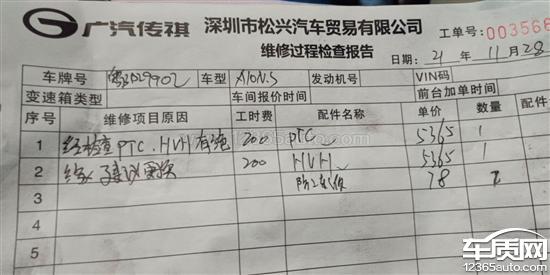 广汽传祺 深圳市松兴汽车贸易有限公司 工单号: 003566
维修过程检查报告 日期: 21 年 11 月 28
车牌号 粤BD29902 车型 AION.S 发动机号 VIN码
变速箱类型 车间报价时间 前台加单时间
序号 维修项目原因 工时费 配件名称 单价 数量 配件
1 经检查PTC.HVH有 200 PTC 5365 1
2 建议更换 200 HVH 5365 1
3 78
4
5
车质网
12365auto.com